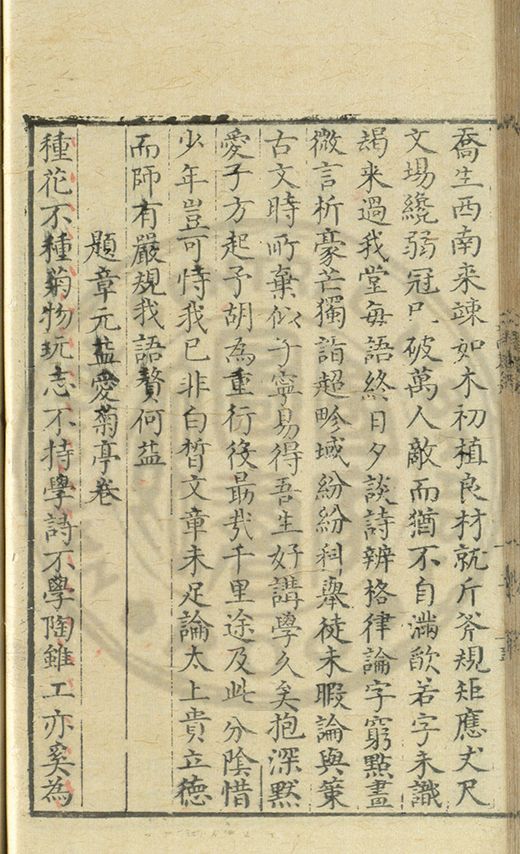 喬生西南来竦如木初植良材就斤斧規矩應丈尺
文場纔弱冠凡破萬人敵而猶不自滿歉若字未識
朅来過我堂每語終日夕談詩辨格律論字窮點畫
微言析豪芒獨詣超畛域紛紛科舉徒未暇論與策
古文時所棄似子寧易得吾生好講學久矣抱深黙
愛子方起予胡為重行役最哉千里途及此分陰惜
少年豈可恃我已非白皙文章未足論太上貴立德
而師有嚴規我語贅何益
題章元益愛菊亭卷
種花不種菊物玩志不持學詩不學陶雖工亦奚為